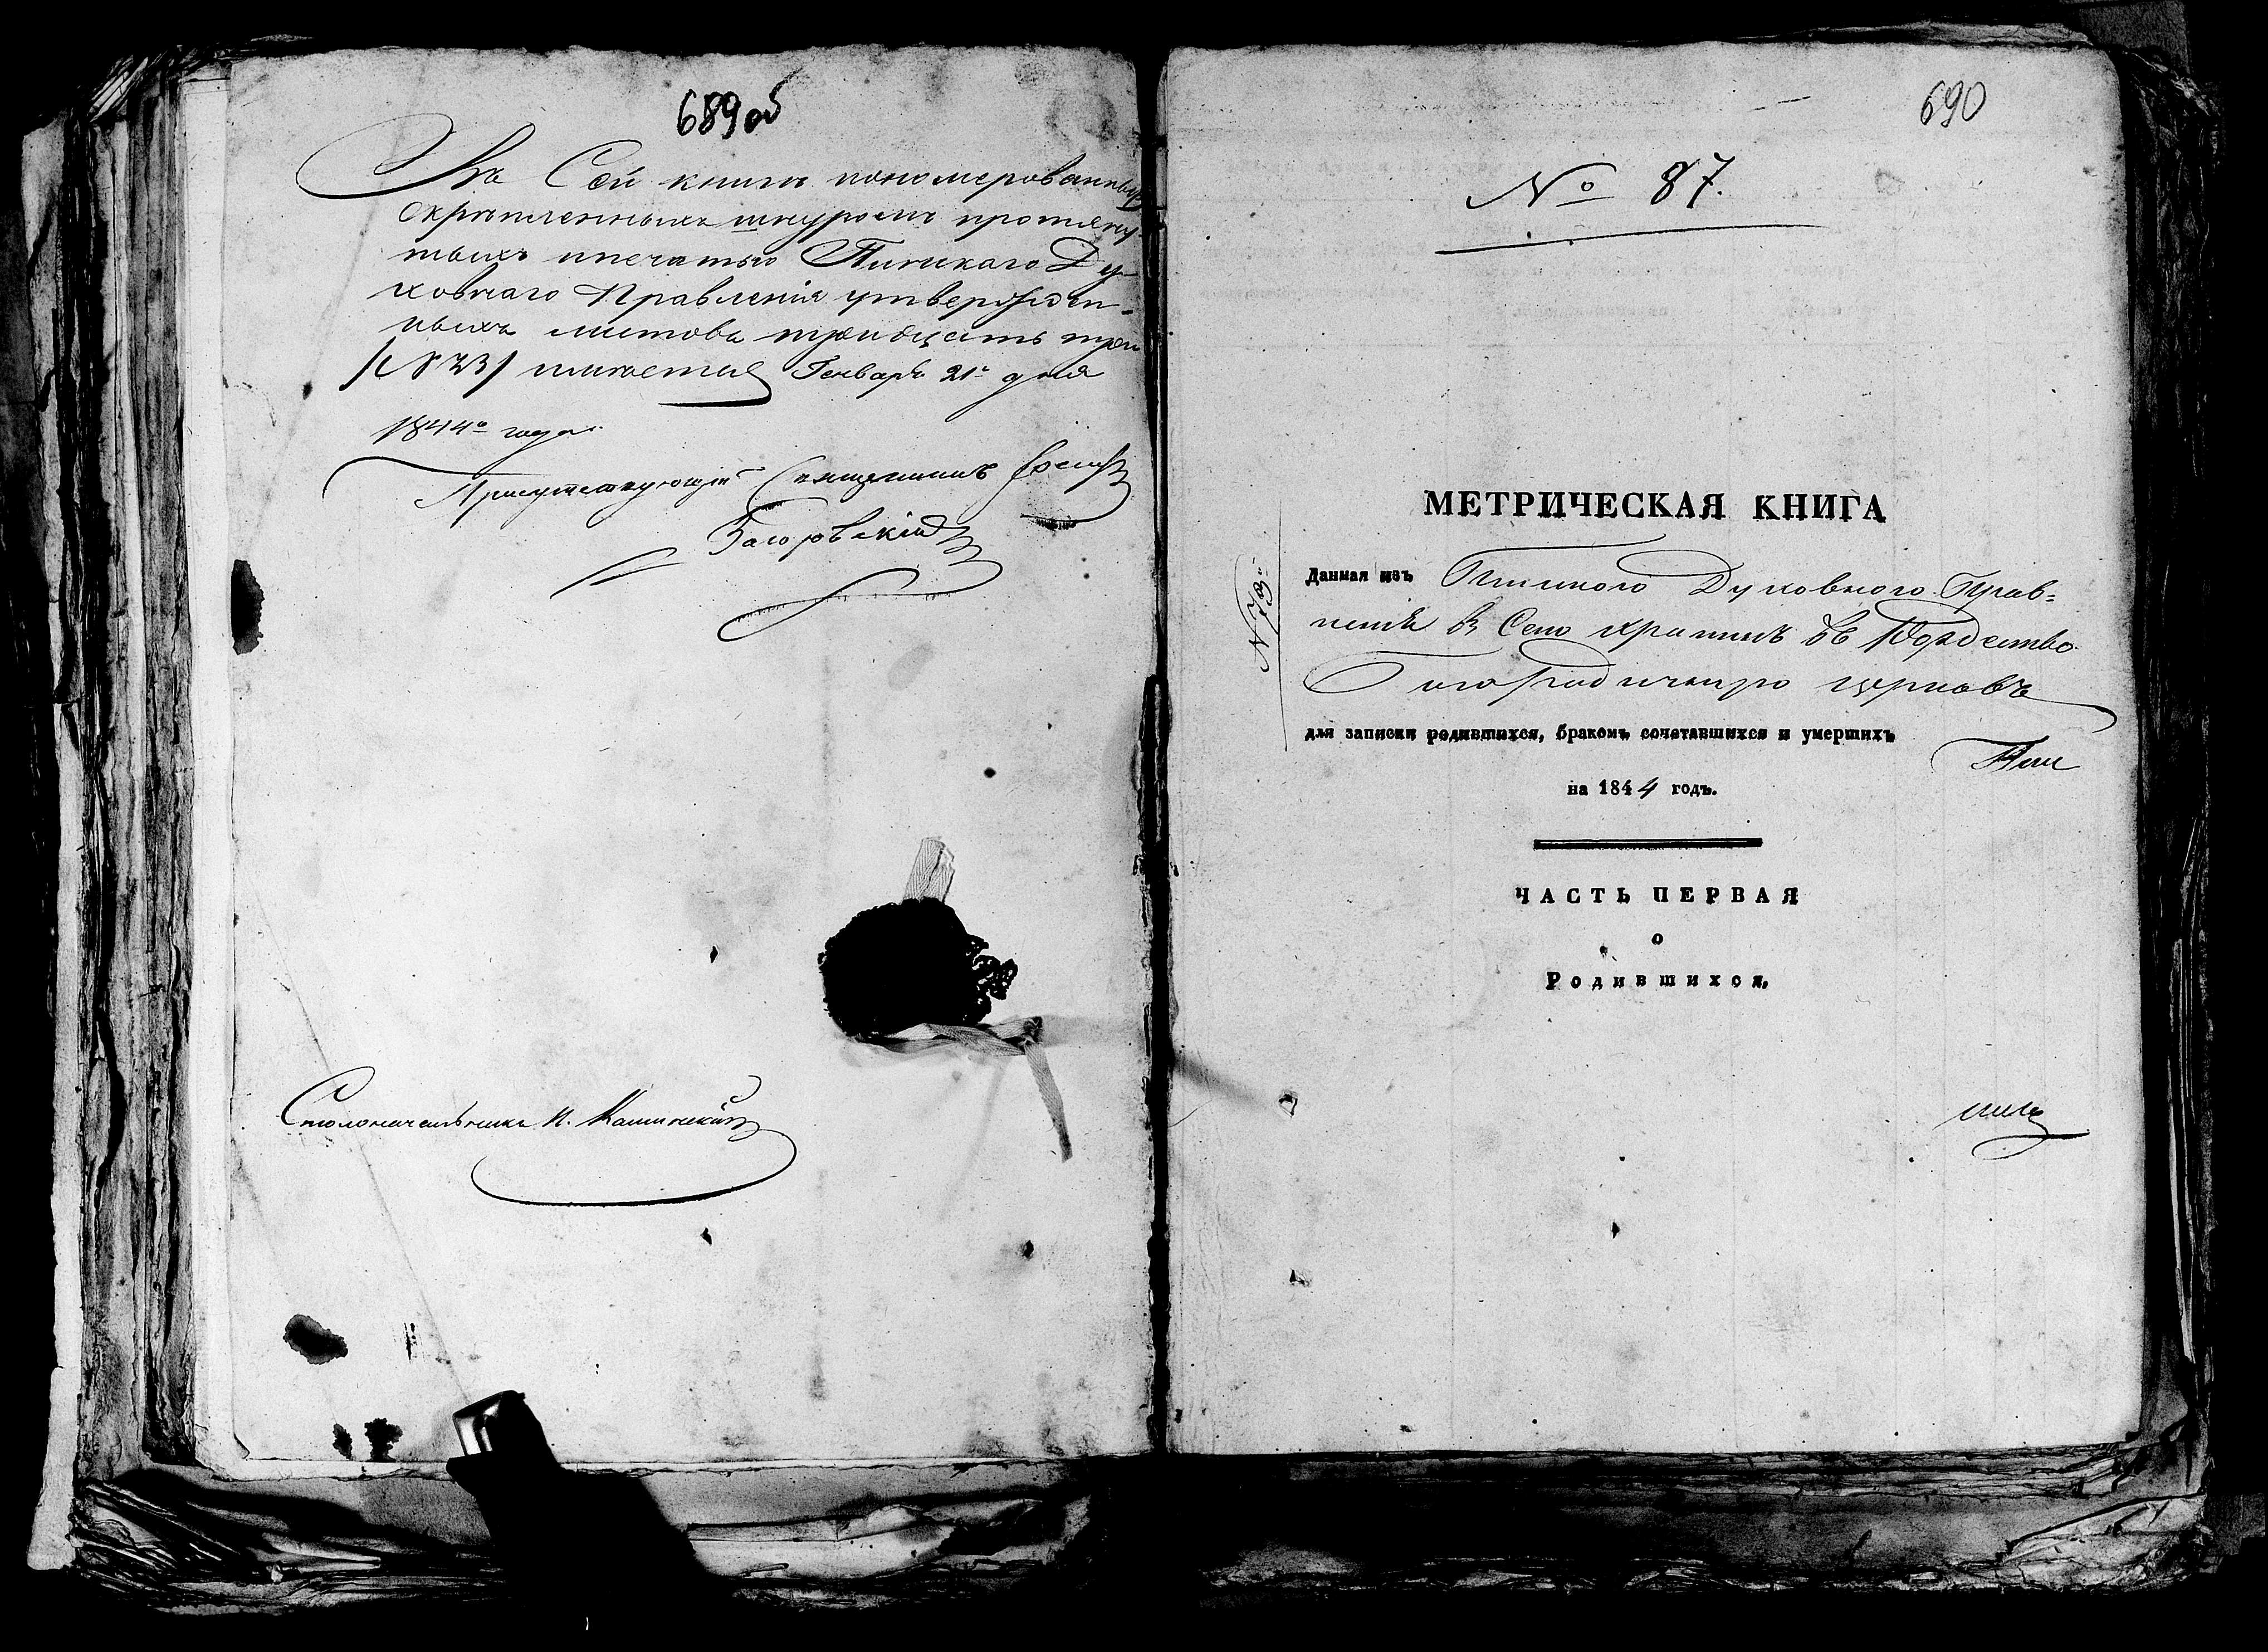 689об
Въ Сей книги пономерованныхъ
скрепленныхъ шнуромъ протяну-
тыхъ ипечатью Пинскаго Ду-
ховнаго Правленія утвержден-
ныхъ листовъ тридцать три
Генваря 21го дня
1844го года
Присутствующій Священникъ
Загоровскій
Столоначальникъ
690
№ 87.
МЕТРИЧЕСКАЯ КНИГА
Данная изъ Пинскаго Духовнаго Прав=
ленія в Село въ Рождество
Богородичную церковь
для записки родившихся, бракомъ сочетавшихся и умершихъ
на 1844 годъ.
ЧАСТЬ ПЕРВАЯ
о
Родившихся.